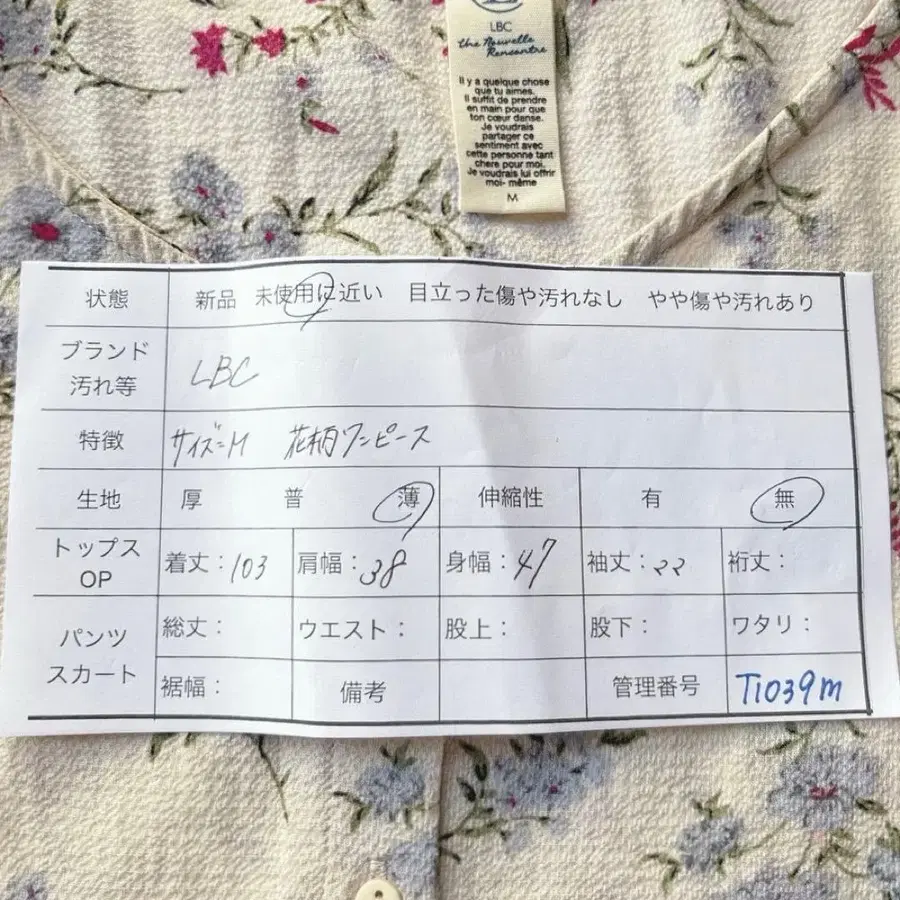 LBC
Une Nouvelle
Rencontre
Il y a quelque chose
que tu aimes.
Il suffit de prendre
en main pour que
ton cœur danse.
Je voudrais
partager ce
sentiment avec
cette personne tant
chere pour moi.
Je voudrais lui offrir
moi- même
M
状態 新品 未使用に近い 目立った傷や汚れなし やや傷や汚れあり
ブランド
汚れ等 LBC
特徴 サイズ=M 花柄ワンピース
生地 厚 普 薄 伸縮性 有 無
トップス
OP 着丈：103 肩幅：38 身幅：47 袖丈：22 裄丈：
パンツ
スカート 総丈： ウエスト： 股上： 股下： ワタリ：
裾幅： 備考 管理番号 T1039m